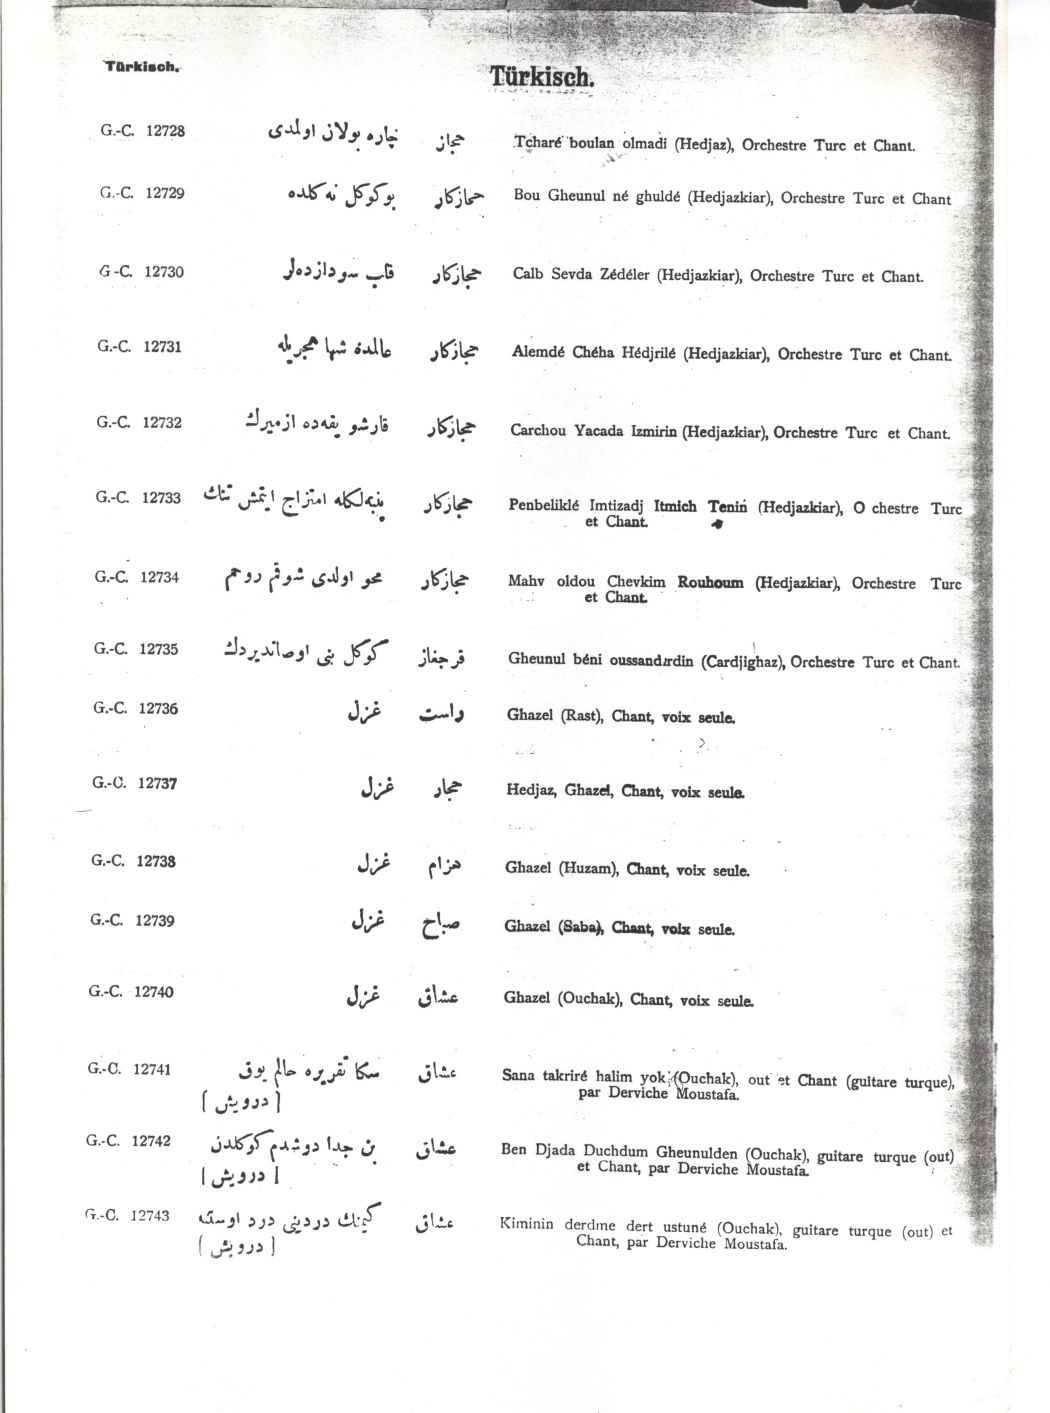 Türkisch.
Türkisch.
G.-C. 12728 چاره بولان اولدی حجاز Tcharé boulan olmadi (Hedjaz), Orchestre Turc et Chant.
G.-C. 12729 بوكوكل نه كلده حجازكار Bou Gheunul né ghuldé (Hedjazkiar), Orchestre Turc et Chant
G-C. 12730 قاب سودازده‌لر حجازكار Calb Sevda Zédéler (Hedjazkiar), Orchestre Turc et Chant.
G.-C. 12731 عالمده شها هجریله حجازكار Alemdé Chéha Hédjrilé (Hedjazkiar), Orchestre Turc et Chant.
G.-C. 12732 قارشو یقه‌ده ازمیرك حجازكار Carchou Yacada Izmirin (Hedjazkiar), Orchestre Turc et Chant.
G.-C. 12733 پنبه‌لكله امتزاج ایتمش تنك حجازكار Penbeliklé Imtizadj Itmich Tenin (Hedjazkiar), O chestre Turc
et Chant.
G.-C. 12734 محو اولدی شوقم روحم حجازكار Mahv oldou Chevkim Rouhoum (Hedjazkiar), Orchestre Turc
et Chant.
G.-C. 12735 كوكل بنی اوصاندیردك قرجغاز Gheunul béni oussandırdin (Cardjighaz), Orchestre Turc et Chant.
G.-C. 12736 غزل راست Ghazel (Rast), Chant, voix seule.
G.-C. 12737 غزل حجاز Hedjaz, Ghazel, Chant, voix seule.
G.-C. 12738 غزل هزام Ghazel (Huzam), Chant, voix seule.
G.-C. 12739 غزل صباح Ghazel (Saba), Chant, voix seule.
G.-C. 12740 غزل عشاق Ghazel (Ouchak), Chant, voix seule.
G.-C. 12741 سكا تقریره حالم یوق عشاق Sana takriré halim yok (Ouchak), out et Chant (guitare turque),
[درویش] par Derviche Moustafa.
G.-C. 12742 بن جدا دوشدم كوكلدن عشاق Ben Djada Duchdum Gheunulden (Ouchak), guitare turque (out)
[درویش] et Chant, par Derviche Moustafa.
G.-C. 12743 كیمنك دردینی درد اوسته عشاق Kiminin derdme dert ustuné (Ouchak), guitare turque (out) et
[درویش] Chant, par Derviche Moustafa.